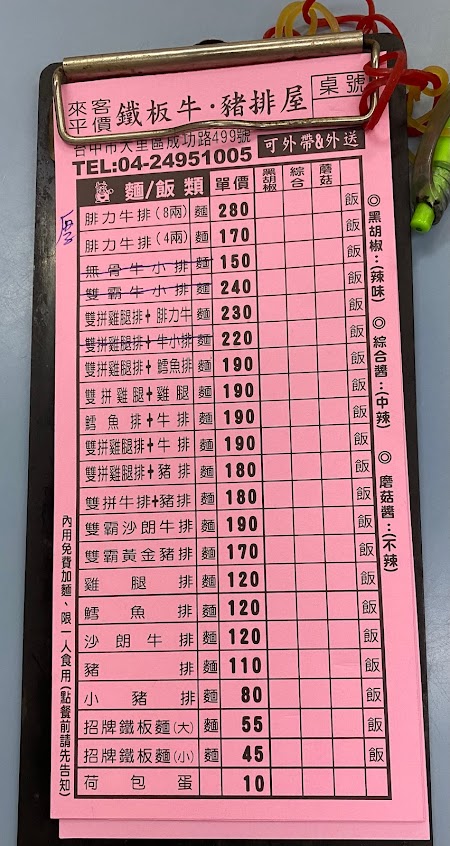 來客平價 鐵板牛·豬排屋 桌號
台中市大里區成功路499號
TEL:04-24951005 可外帶&外送
麵/飯類 單價 黑胡椒 綜合 蘑菇
厚
腓力牛排(8兩) 麵 280 飯
腓力牛排(4兩) 麵 170 飯
無骨牛小排 麵 150 飯
雙霸牛小排 麵 240 飯
雙拼雞腿排+腓力牛 麵 230 飯
雙拼雞腿排+牛小排 麵 220 飯
雙拼雞腿排+鱈魚排 麵 190 飯
雙拼雞腿+雞腿 麵 190 飯
鱈魚排+牛排 麵 190 飯
雙拼雞腿排+牛排 麵 190 飯
雙拼雞腿排+豬排 麵 180 飯
雙拼牛排+豬排 麵 180 飯
雙霸沙朗牛排 麵 190 飯
雙霸黃金豬排 麵 170 飯
雞腿排 麵 120 飯
鱈魚排 麵 120 飯
沙朗牛排 麵 120 飯
豬排 麵 110 飯
小豬排 麵 80 飯
招牌鐵板麵(大) 麵 55 飯
招牌鐵板麵(小) 麵 45 飯
荷包蛋 10
◎黑胡椒:(辣味) ◎綜合醬:(中辣) ◎蘑菇醬:(不辣)
內用免費加麵、限一人食用(點餐前請先告知)